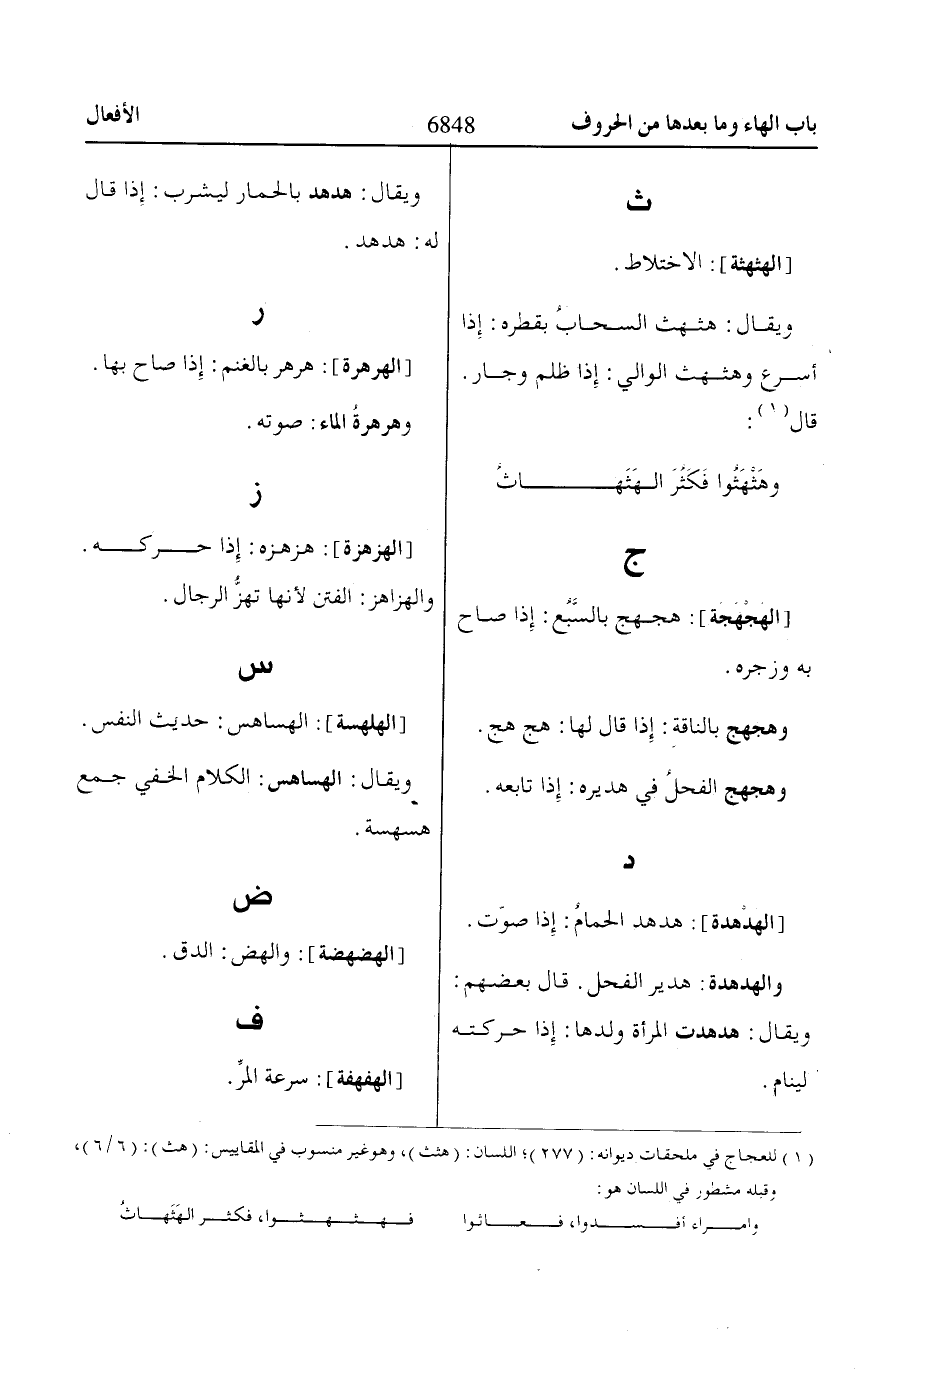 باب الهاء وما بعدها من الحروف
6848
الأفعال
ث
[الهثهثة]: الاختلاط.
ويقال: هثهث السحابُ بقطره: إذا
أسرع وهثهث الوالي: إذا ظلم وجار.
قال(١):
وهَثْهَثُوا فَكَثُرَ الهَثَهاثُ
ج
[الهَجْهَجة]: هجهج بالسَّبُع: إذا صاح
به وزجره.
وهجهج بالناقة: إذا قال لها: هج هج.
وهجهج الفحلُ في هديره: إذا تابعه.
د
[الهدْهدة]: هدهد الحمامُ: إذا صوّت.
والهدهدة: هدير الفحل. قال بعضهم:
ويقال: هدهدت المرأة ولدها: إذا حركته
لينام.
ويقال: هدهد بالحمار ليشرب: إذا قال
له: هدهد.
ر
[الهرهرة]: هرهر بالغنم: إذا صاح بها.
وهرهرةُ الماء: صوته.
ز
[الهزهزة]: هزهزه: إذا حركه.
والهزاهز: الفتن لأنها تهزُّ الرجال.
س
[الهلهسة]: الهساهس: حديث النفس.
ويقال: الهساهس: الكلام الخفي جمع
هسهسة.
ض
[الهضهضة]: والهض: الدق.
ف
[الهفهفة]: سرعة المرِّ.
(١) للعجاج في ملحقات ديوانه: (٢٧٧)؛ اللسان: (هثث)، وهوغير منسوب في المقاييس: (هث): (٦/٦)،
وقبله مشطور في اللسان هو:
وامراء أفسدوا، فعاثوا فهثهثوا، فكثر الهَثَهاثُ